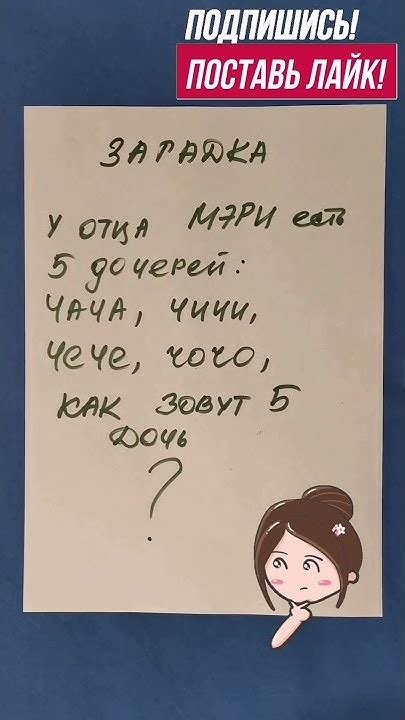 ПОДПИШИСЬ!
ПОСТАВЬ ЛАЙК!
ЗАГАДКА
У ОТЦА МЭРИ есть
5 дочерей:
ЧАЧА, ЧИЧИ,
Чече, чочо,
КАК ЗОВУТ 5
ДОЧЬ
?